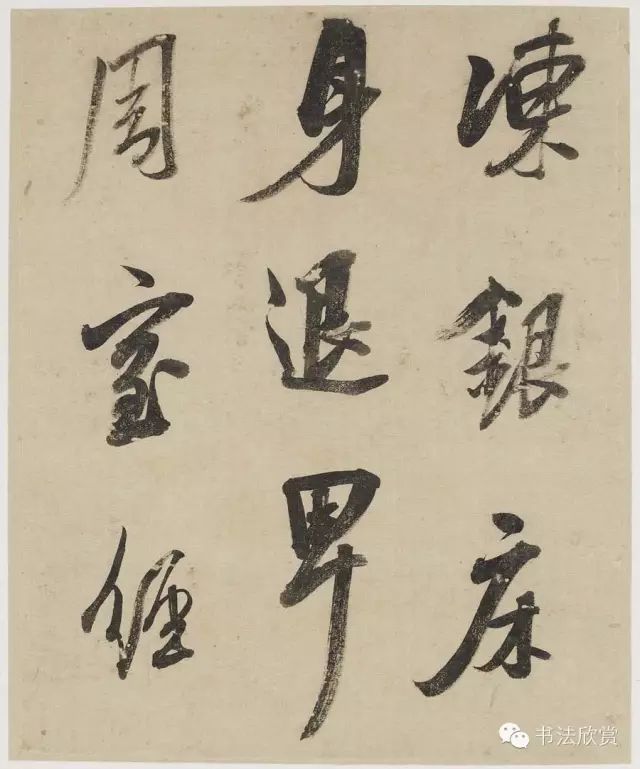 凍銀床
身退卑
周室經
书法欣赏